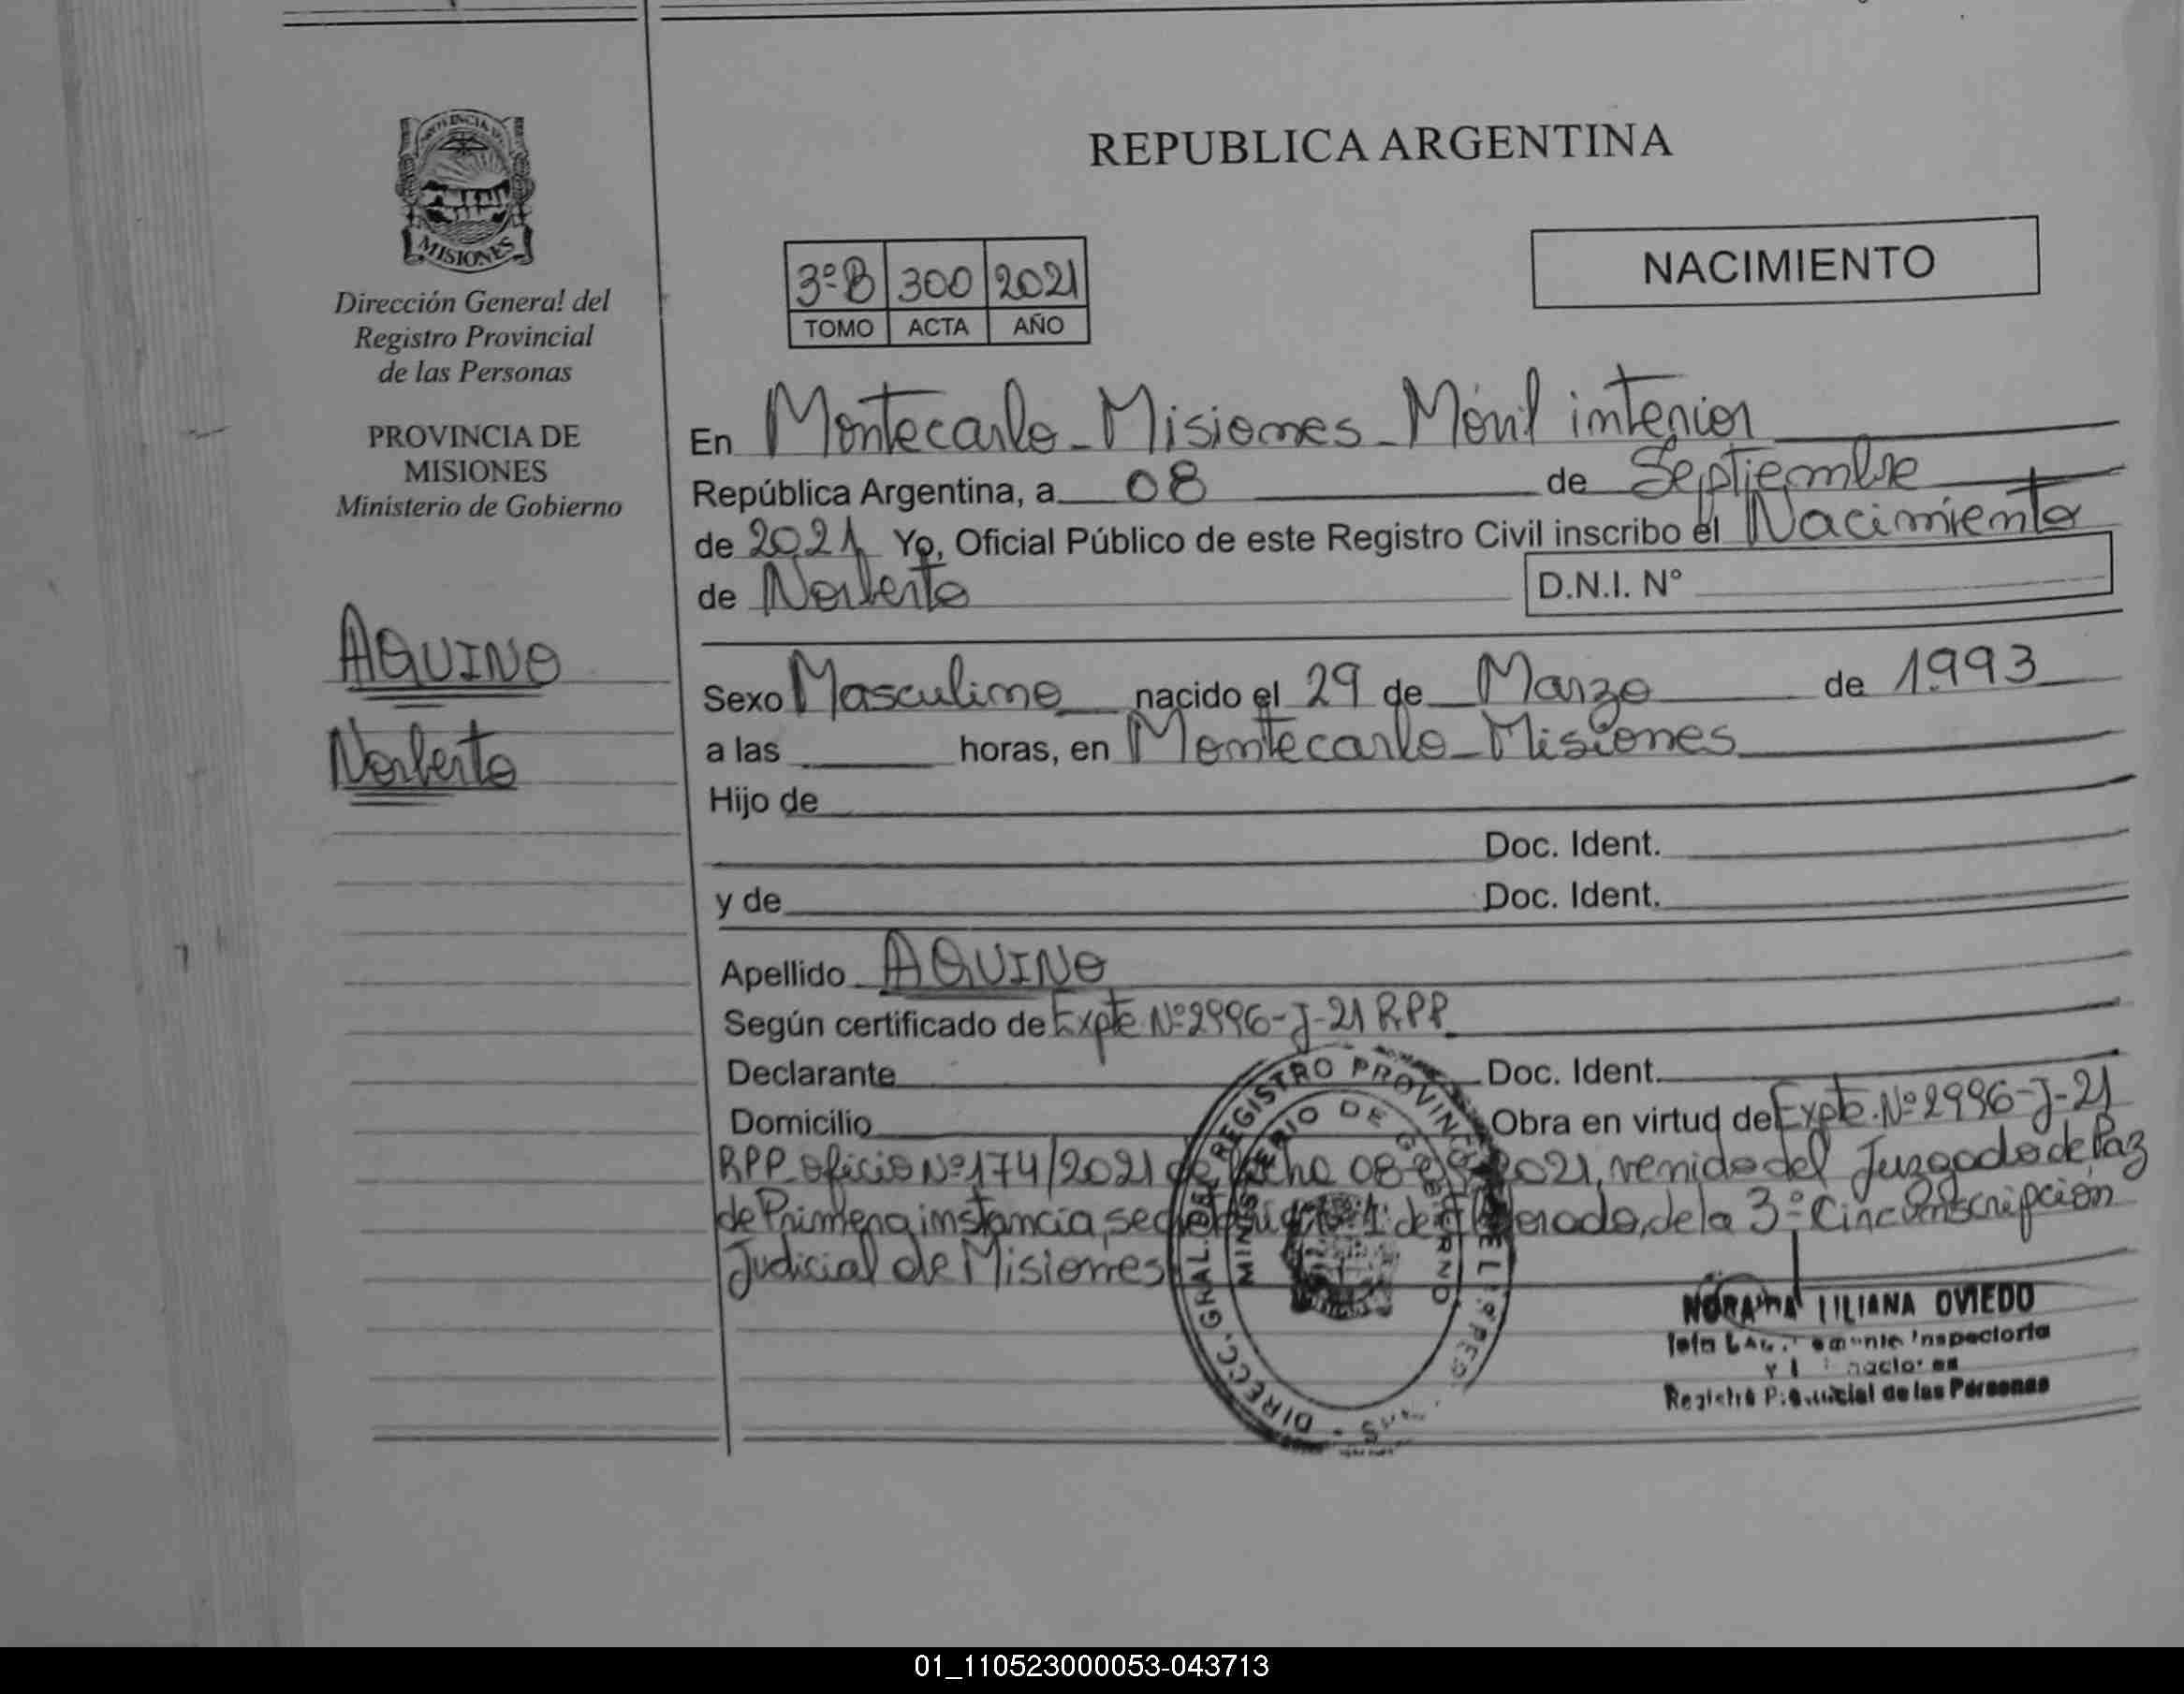 PROVINCIA DE
MISIONES
Dirección General del
Registro Provincial
de las Personas
PROVINCIA DE
MISIONES
Ministerio de Gobierno
AQUINO
Norberto
REPUBLICA ARGENTINA
3ºB 300 2021
TOMO ACTA AÑO
NACIMIENTO
En Montecarlo - Misiones - Móvil interior
República Argentina, a 08 de Septiembre
de 2021 Yo, Oficial Público de este Registro Civil inscribo el Nacimiento
de Norberto D.N.I. Nº
Sexo Masculino nacido el 29 de Marzo de 1993
a las horas, en Montecarlo - Misiones
Hijo de
Doc. Ident.
y de Doc. Ident.
Apellido AQUINO
Según certificado de Expte Nº 2996-J-21 RPP
Declarante Doc. Ident.
Domicilio Obra en virtud de Expte. Nº 2996-J-21
RPP oficio Nº 174/2021 de fecha 08 2021, venido del Juzgado de Paz
de Primera instancia, de la 3º Circunscripción
Judicial de Misiones
DIRECC. GRAL. DEL REGISTRO PROVINC DE L PES
MINISTERIO DE GOBIERNO
LILIANA OVIEDO
Inspectoria
Registro Provincial de las Personas
01_110523000053-043713